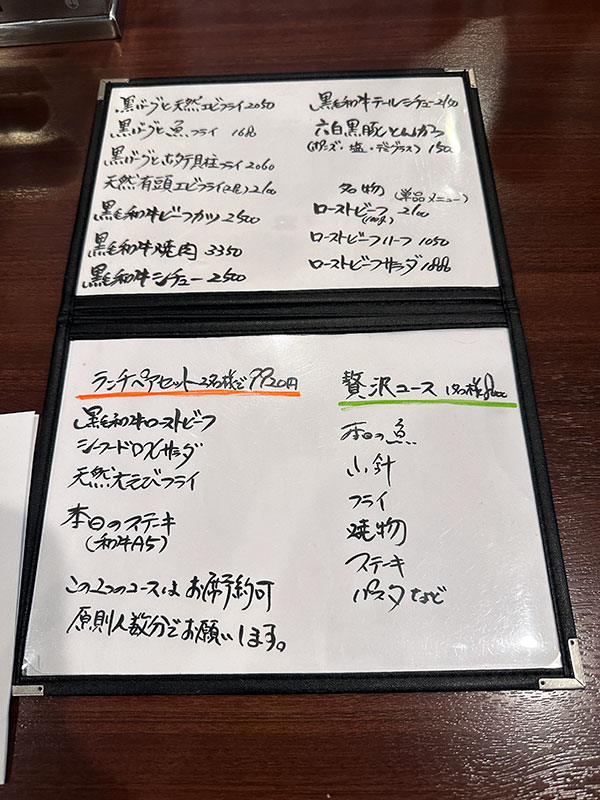 黒バーグと天然エビフライ 2050
黒バーグと魚フライ
黒バーグとホタテ貝柱フライ 2060
天然有頭エビフライ(2尾) 2100
黒毛和牛ビーフカツ 2500
黒毛和牛焼肉 3350
黒毛和牛シチュー 2500
黒毛和牛テールシチュー 2100
六白黒豚とんかつ
(ポンズ・塩・デミグラス)
名物 (単品メニュー)
ローストビーフ 2100
(100g)
ローストビーフハーフ 1050
ローストビーフサラダ
ランチペアセット 2名様で 7920円
黒毛和牛ローストビーフ
シーフードDXサラダ
天然大えびフライ
本日のステキ
(和牛A5)
この2つのコースはお席予約可
原則人数分でお願いします。
贅沢コース 1名様
本日の魚
小針
フライ
焼物
ステーキ
パスタなど